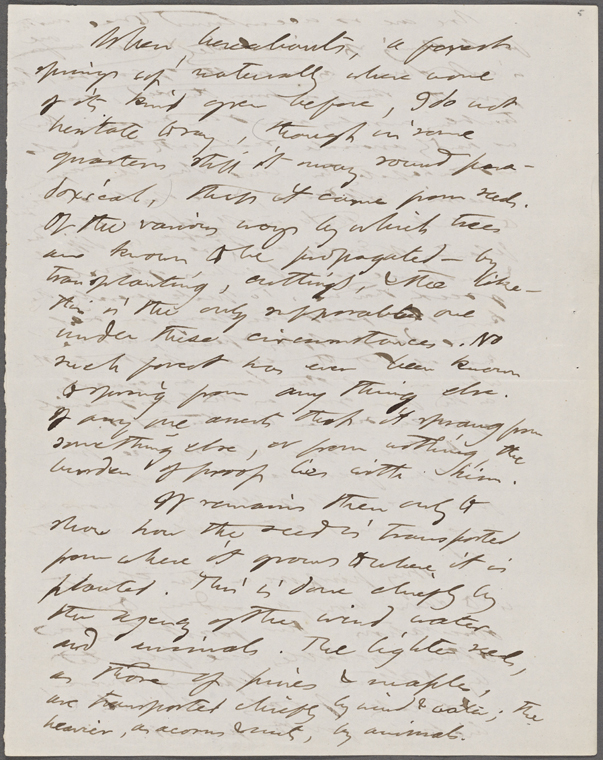 When hereabouts, a forest
springs up naturally where none
of its kind grew before, I do not
hesitate to say, (though in some
quarters still it may sound para-
doxical,) that it came from seeds.
Of the various ways by which trees
are known to be propagated - by
transplanting, cuttings, & the like -
this is the only supposable one
under these circumstances. No
such forest has ever been known
to spring from any thing else.
If any one asserts that it sprang from
something else, or from nothing, the
burden of proof lies with him.
It remains then only to
show how the seed is transported
from where it grows to where it is
planted. This is done chiefly by
the agency of the wind water
and animals. The lighter seeds,
as those of pines & maples,
are transported chiefly by wind & water; the
heavier, as acorns & nuts, by animals.